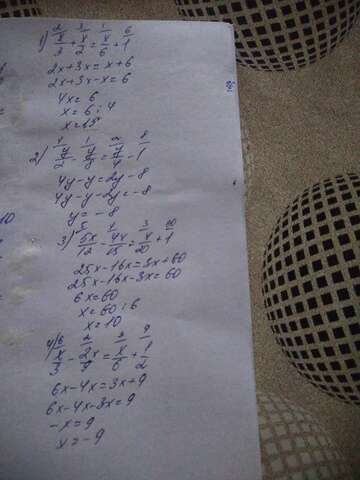 2 3 1 6
1) x/3 + x/2 = x/6 + 1/1
2x+3x=x+6
2x+3x-x=6
4x=6
x=6:4
x=1,5
4 1 2 8
2) y/2 - y/8 = y/4 - 1/1
4y-y=2y-8
4y-y-2y=-8
y=-8
5 4 3 60
3) 5x/12 - 4x/15 = x/20 + 1/1
25x-16x=3x+60
25x-16x-3x=60
6x=60
x=60:6
x=10
6 2 3 9
4) x/3 - 2x/9 = x/6 + 1/2
6x-4x=3x+9
6x-4x-3x=9
-x=9
x=-9